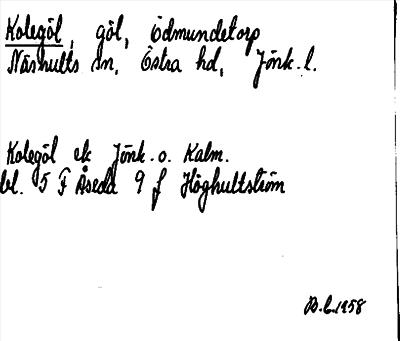 Kolegöl, göl, Ödmundetorp
Näshults sn, Östra hd, Jönk. l.
Kolegöl ek Jönk. o. Kalm.
bl. 5 F Åseda 9 f Höghultström
B.L. 1958